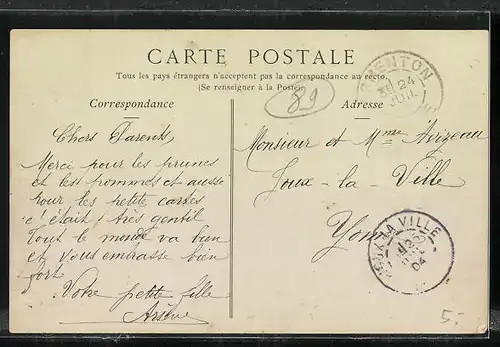 CARTE POSTALE
Tous les pays étrangers n'acceptent pas la correspondance au recto.
(Se renseigner à la Poste)
Correspondance
Adresse
89
MENTON
24
JUIL
Chers Parents,
Merci pour les prunes
et les pommes et aussi
pour les petite cartes
c'était très gentil
Tout le monde va bien
et vous embrasse bien
fort
Votre petite fille
Monsieur et Mme Avizeau
Joux-la-Ville
Yonne
JOUX-LA VILLE
04
5.-